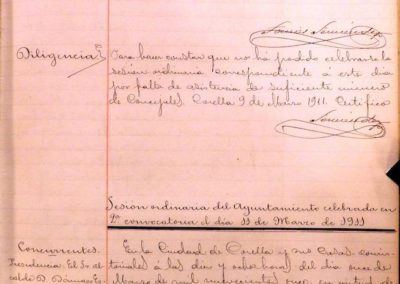 Diligencia
Para hacer constar que no há podido celebrarse la
sesion ordinaria correspondiente á este dia
por falta de asistencia de suficiente número
de Concejales, Corella 9 de Marzo 1911. Certifico
Sesion ordinaria del Ayuntamiento celebrada en
2ª convocatoria el dia 11 de Marzo de 1911
Concurrentes.
En la Ciudad de Corella y sus Casas consis-
Presidencia. El Sr. Al-
toriales á las diez y ocho horas del dia once de
calde D.
Marzo de mil novecientos once en virtud de